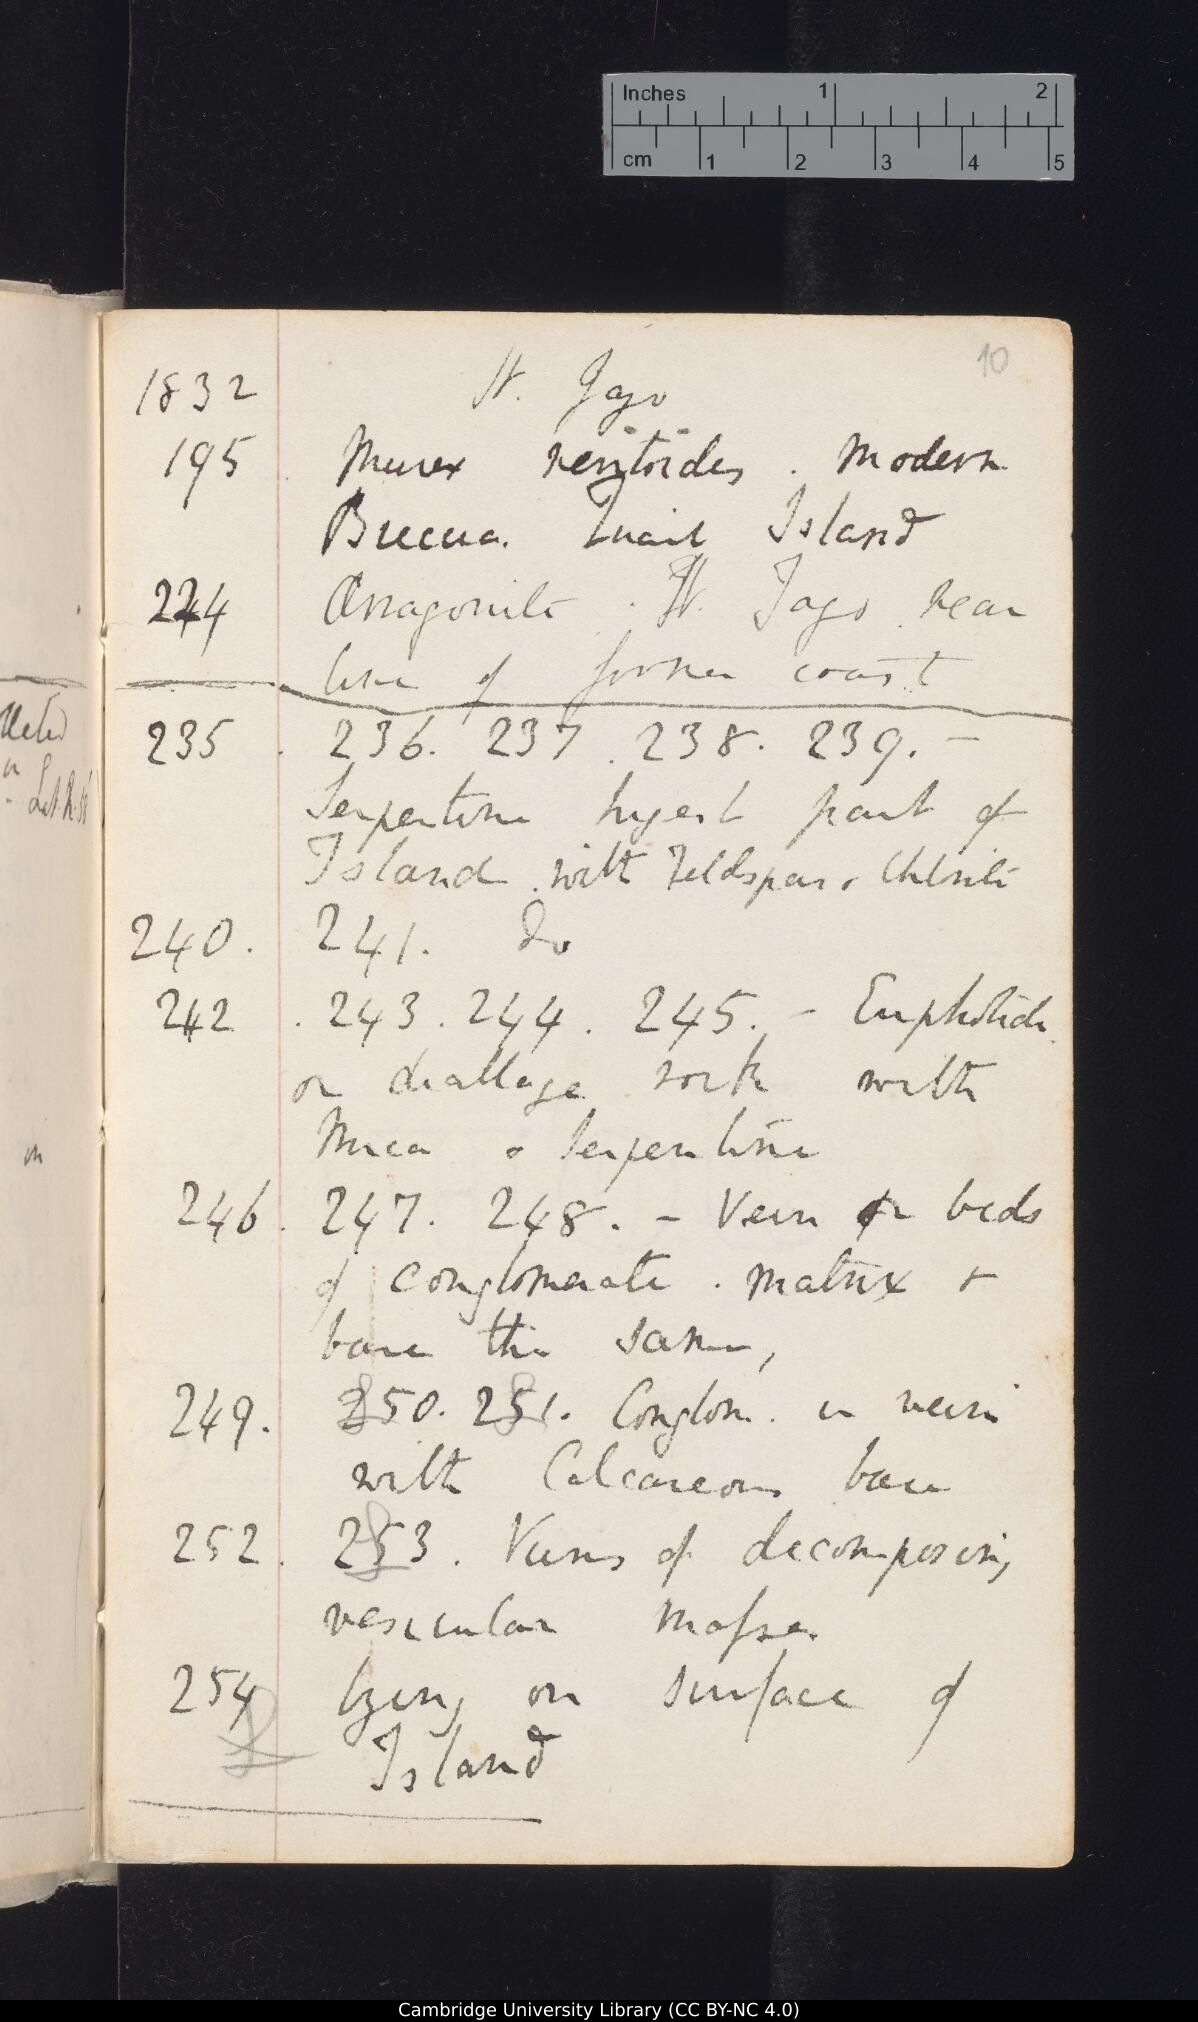 Inches 1 2
cm 1 2 3 4 5
10
1832 St. Jago
195 Murex neritoides. Modern
Breccia. Quail Island
224 Arragonite. St. Jago near
line of former coast
235 . 236. 237. 238. 239. -
Serpentine hygest part of
Island. with Feldspar & Chlorite
240. 241. Do
242 . 243. 244. 245. - Euphotide
or diallage rock with
Mica & Serpentine
246. 247. 248. - Vein or beds
of conglomerate. matrix &
base the same,
249. 250. 251. Conglom. in vein
with Calcareous base
252. 253. Veins of decomposing
vesicular masses
254 lying on surface of
Island
in
Cambridge University Library (CC BY-NC 4.0)